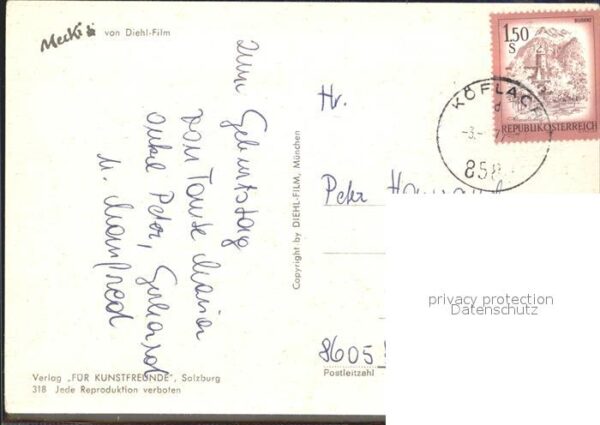 Mecki von Diehl-Film
Zum Geburtstag
von Tante Maria
Onkel Peter, Gerhard
u. Manfred
Copyright by DIEHL-FILM, München
Verlag „FÜR KUNSTFREUNDE", Salzburg
318 Jede Reproduktion verboten
1.50
S
BLUDENZ
REPUBLIK ÖSTERREICH
KÖFLACH
d
-3.-
858
Hr.
Peter
8605
Postleitzahl
privacy protection
Datenschutz